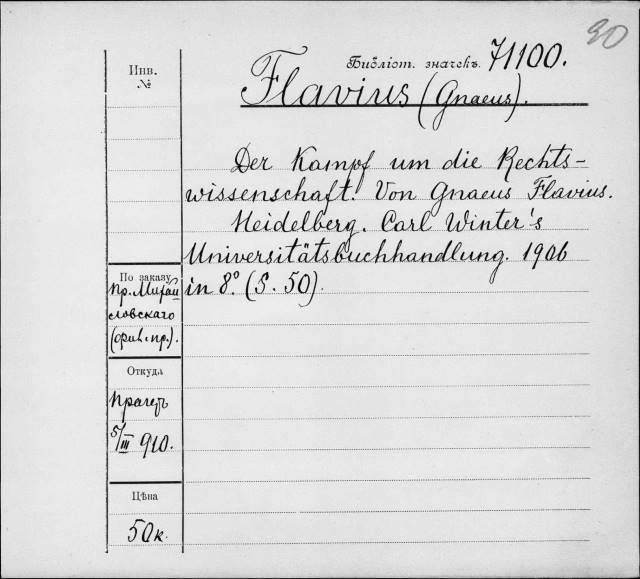 90
Библіот. значекъ 71100.
Инв.
№
Flavius (Gnaeus).
Der Kampf um die Rechts-
wissenschaft. Von Gnaeus Flavius.
Heidelberg. Carl Winter's
Universitätsbuchhandlung. 1906
in 8° (S. 50).
По заказу
пр. Михай
ловскаго
Откуда
5/III 910.
Цѣна
50к.